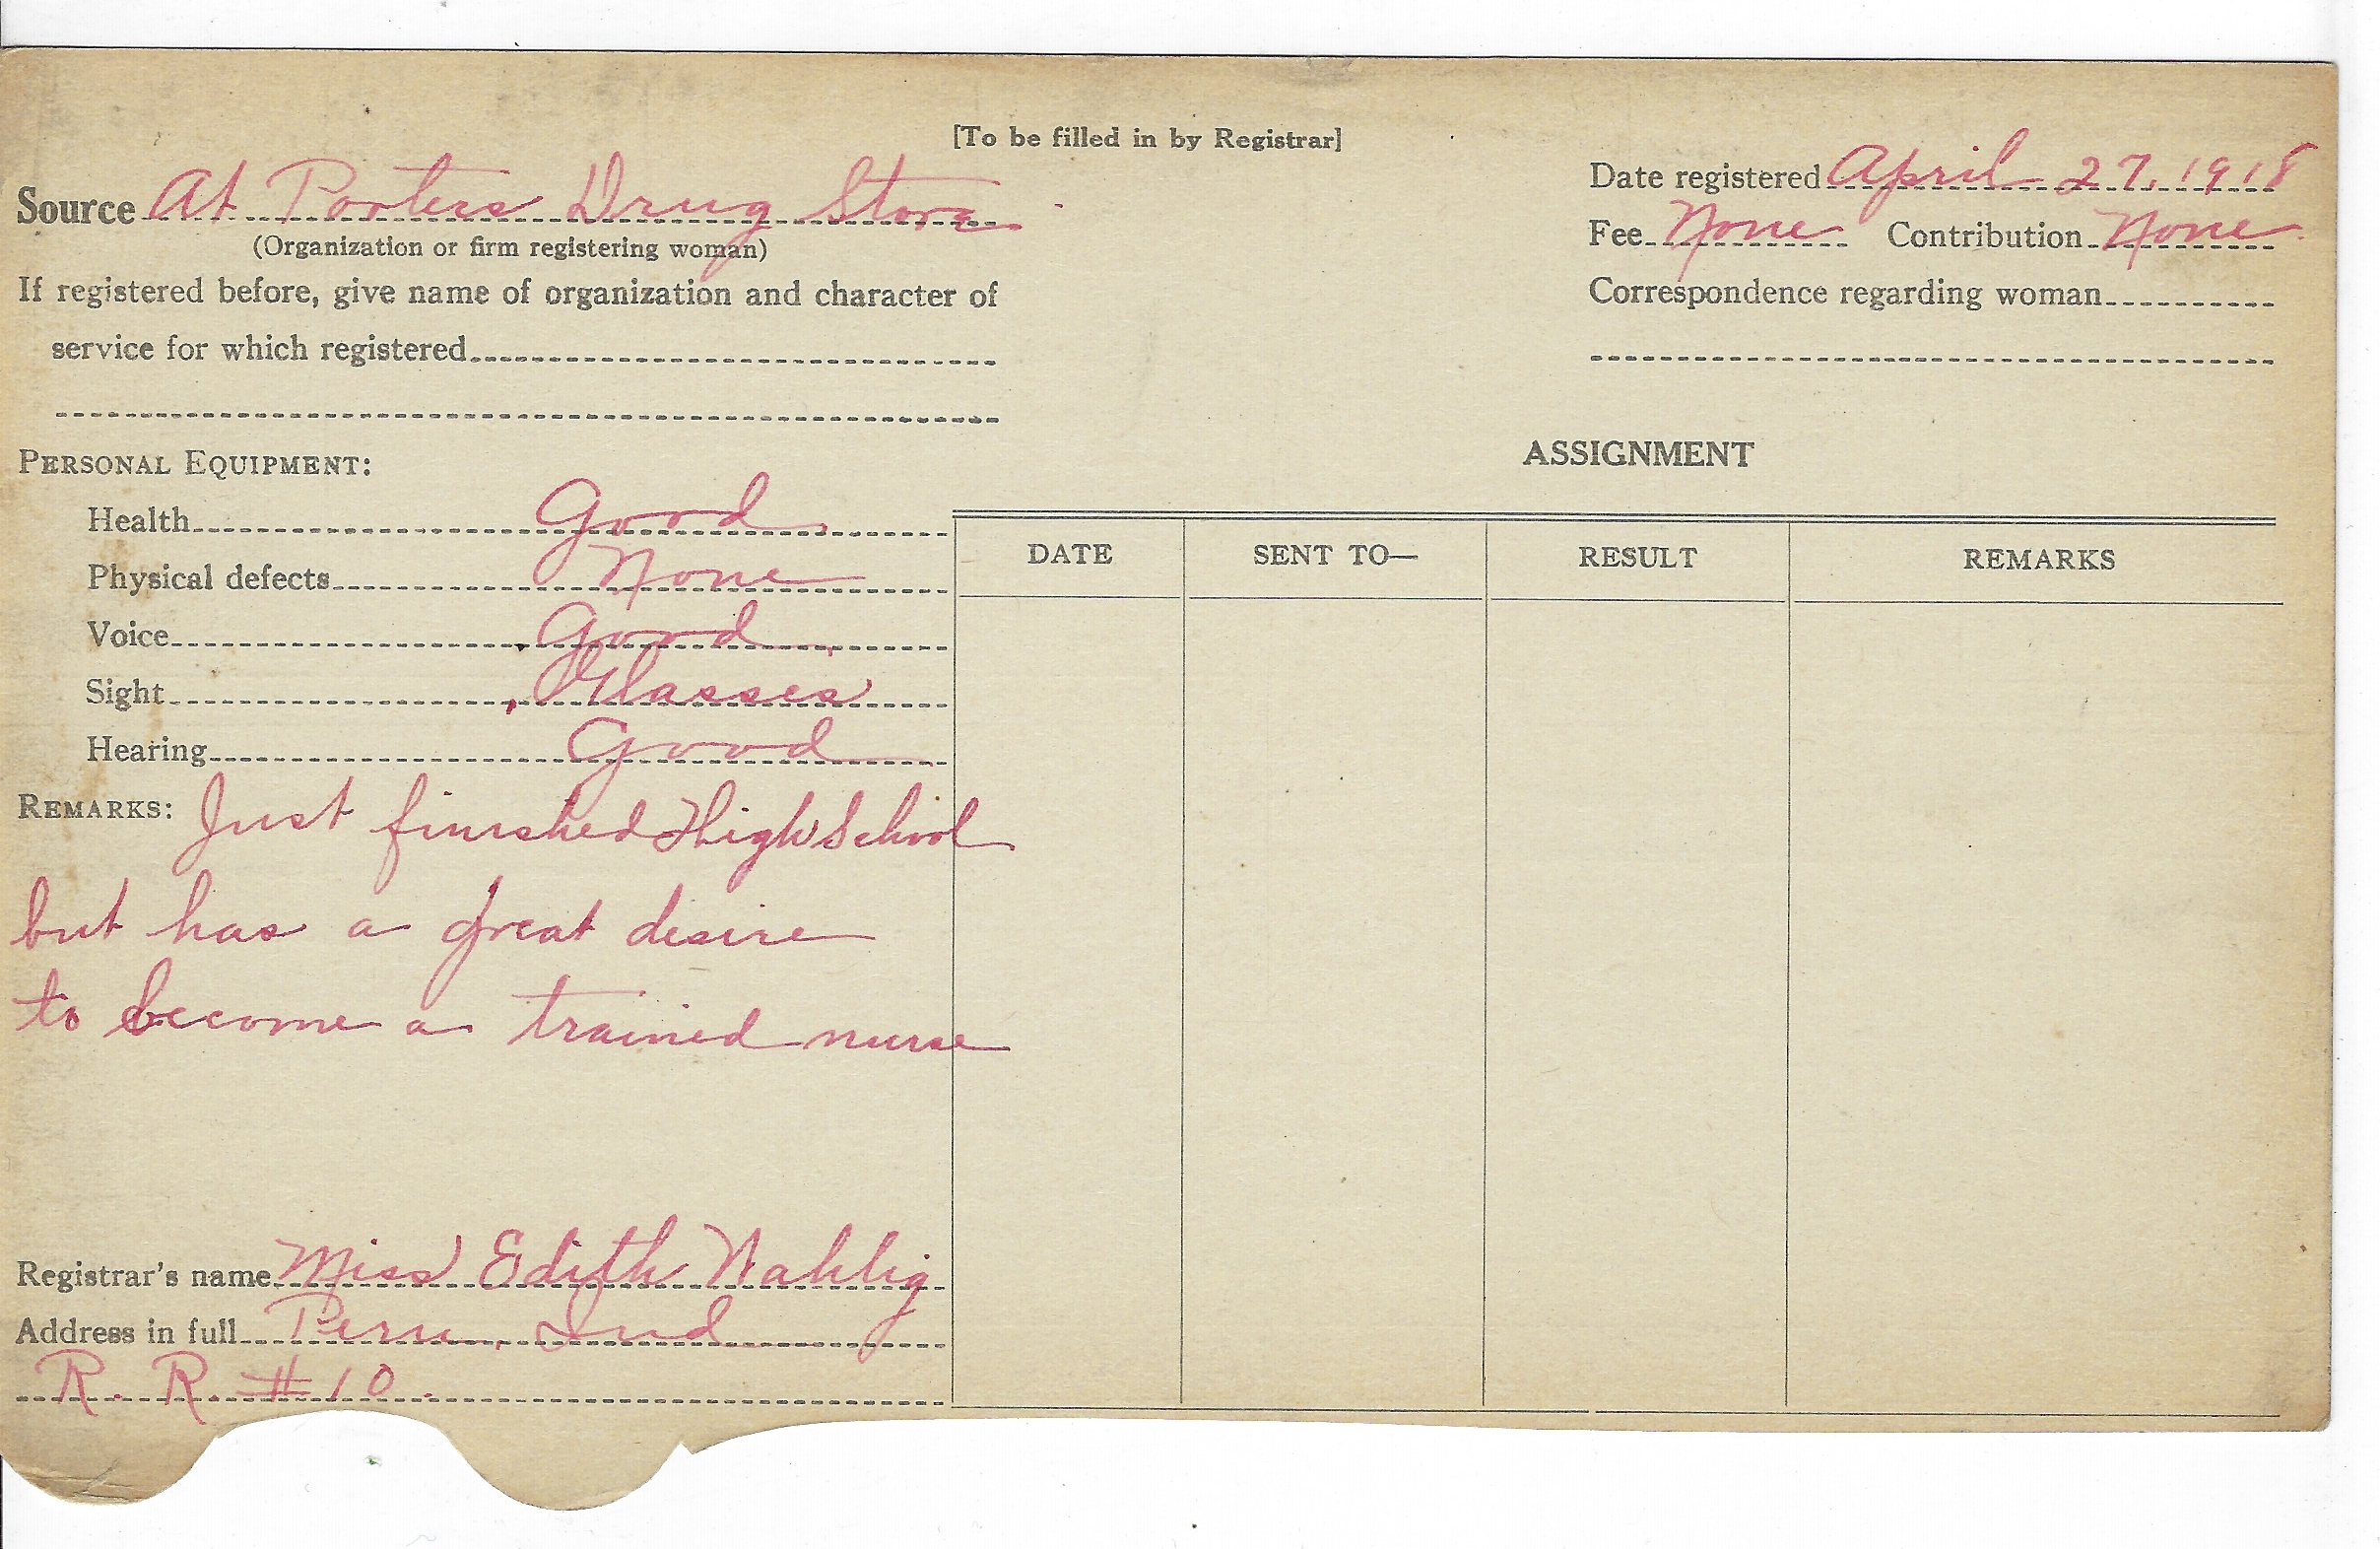 [To be filled in by Registrar]
Source At Porters Drug Store
(Organization or firm registering woman)
If registered before, give name of organization and character of
service for which registered
PERSONAL EQUIPMENT:
Health Good
Physical defects None
Voice Good
Sight Glasses
Hearing Good
REMARKS: Just finished High School
but has a great desire
to become a trained nurse
Registrar's name Miss Edith Nahlig
Address in full Peru, Ind
R. R. #10.
Date registered April 27, 1918
Fee None Contribution None
Correspondence regarding woman
ASSIGNMENT
DATE SENT TO— RESULT REMARKS